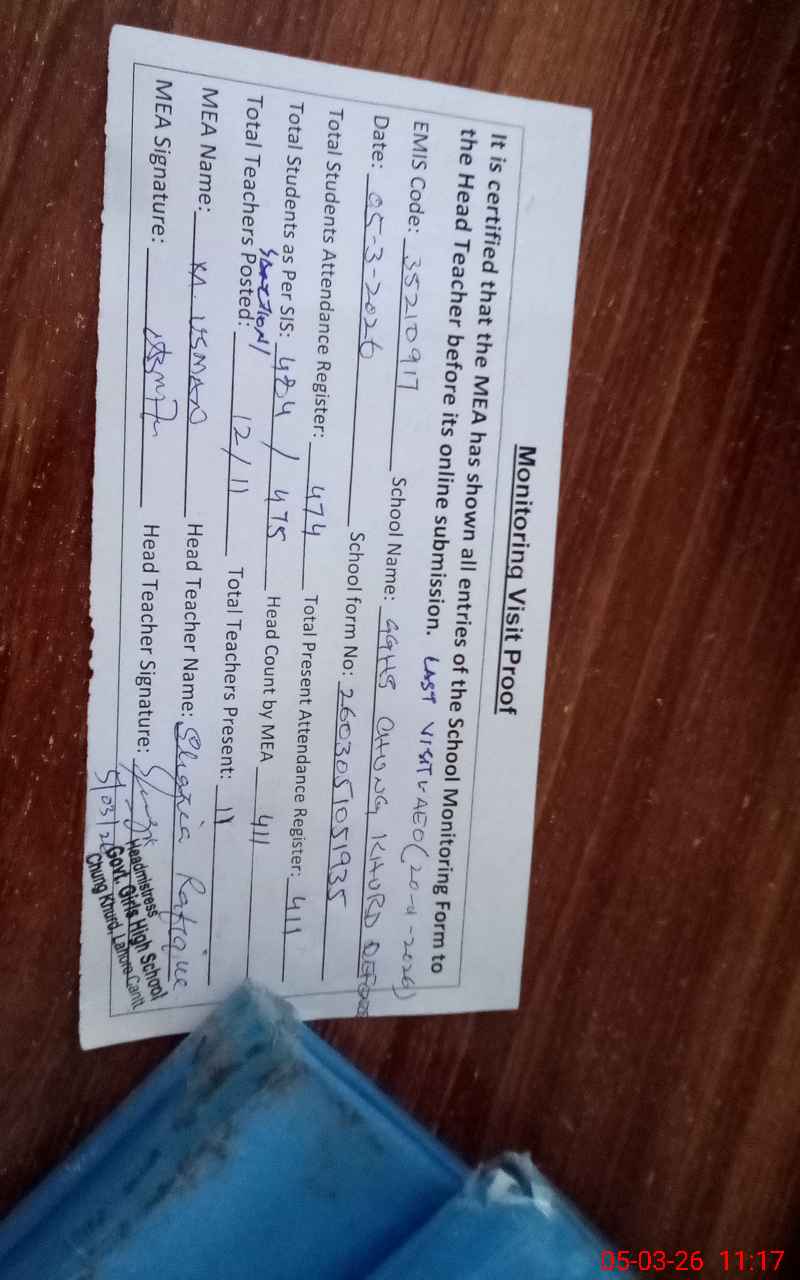 Monitoring Visit Proof
It is certified that the MEA has shown all entries of the School Monitoring Form to
the Head Teacher before its online submission. LAST VISIT AEO (20-
-2026)
EMIS Code: 35210917 School Name: GGHS CHUNG KHURD
Date: 05-3-2026 School form No: 2603051051935
Total Students Attendance Register: 474 Total Present Attendance Register: 411
Total Students as Per SIS: 484 / 475 Head Count by MEA 411
SANCTION/
Total Teachers Posted: 12/11 Total Teachers Present: 11
MEA Name: KA. USMAN Head Teacher Name: Shazia Rafique
MEA Signature: Head Teacher Signature:
5/03/26
Headmistress
Govt. Girls High School
Chung Khurd, Lahore Cantt
05-03-26 11:17